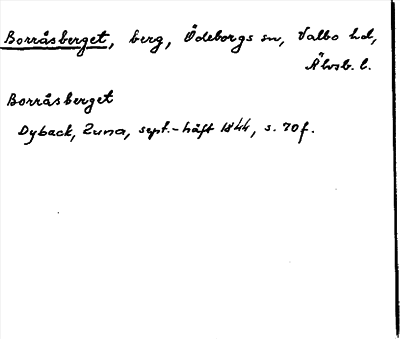 Borråsberget, berg, Ödeborgs sn, Valbo hd,
Älvsb. l.
Borråsberget
Dyback, Runa, sept.-häft 1844, s. 70f.